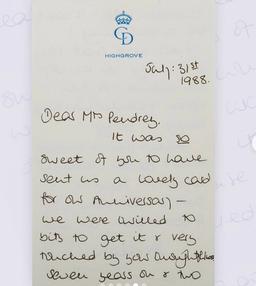 HIGHGROVE
July: 31st
1988.
Dear Mrs Pendrey.
It was so
sweet of you to have
sent us a lovely card
for our Anniversary -
we were thrilled to
bits to get it & very
touched by your thoughtfulness
seven years on & two